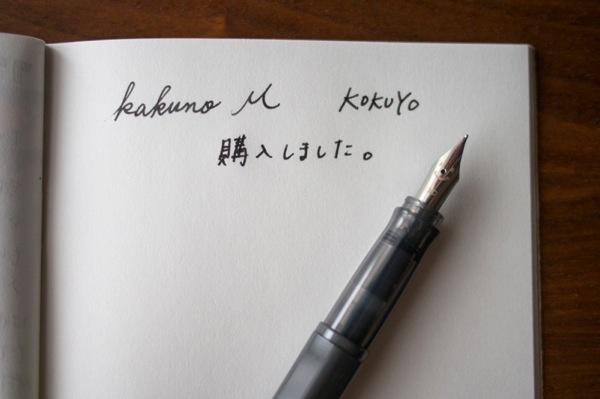 kakuno M KOKUYO
購入しました。